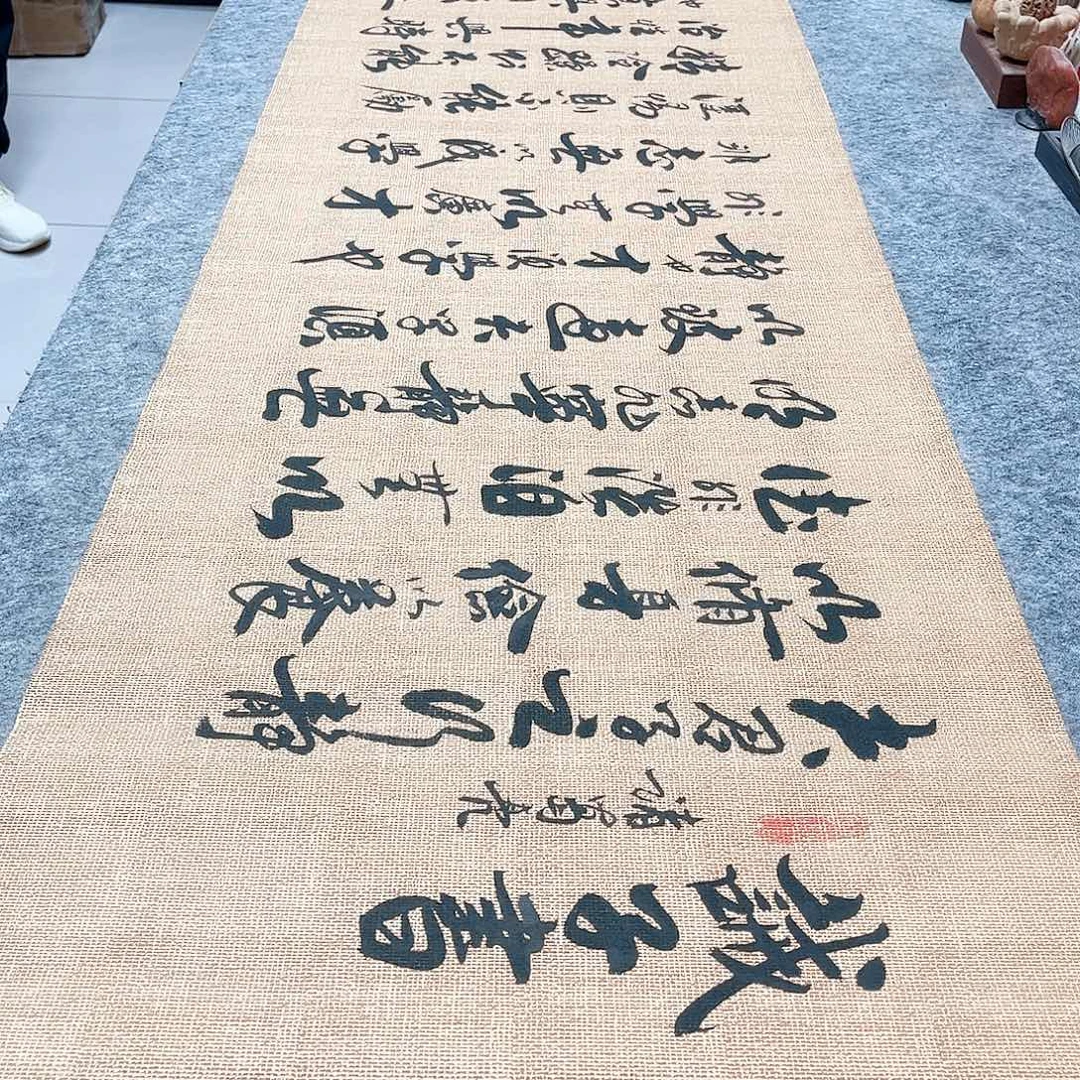 誡子書
諸葛亮
夫君子之行靜
以脩身儉以養
德非澹泊無以
明志非寧靜無
以致遠夫學須
靜也才須學也
非學無以廣才
非志無以成學
淫慢則不能勵
精險躁則不能
治性年與時